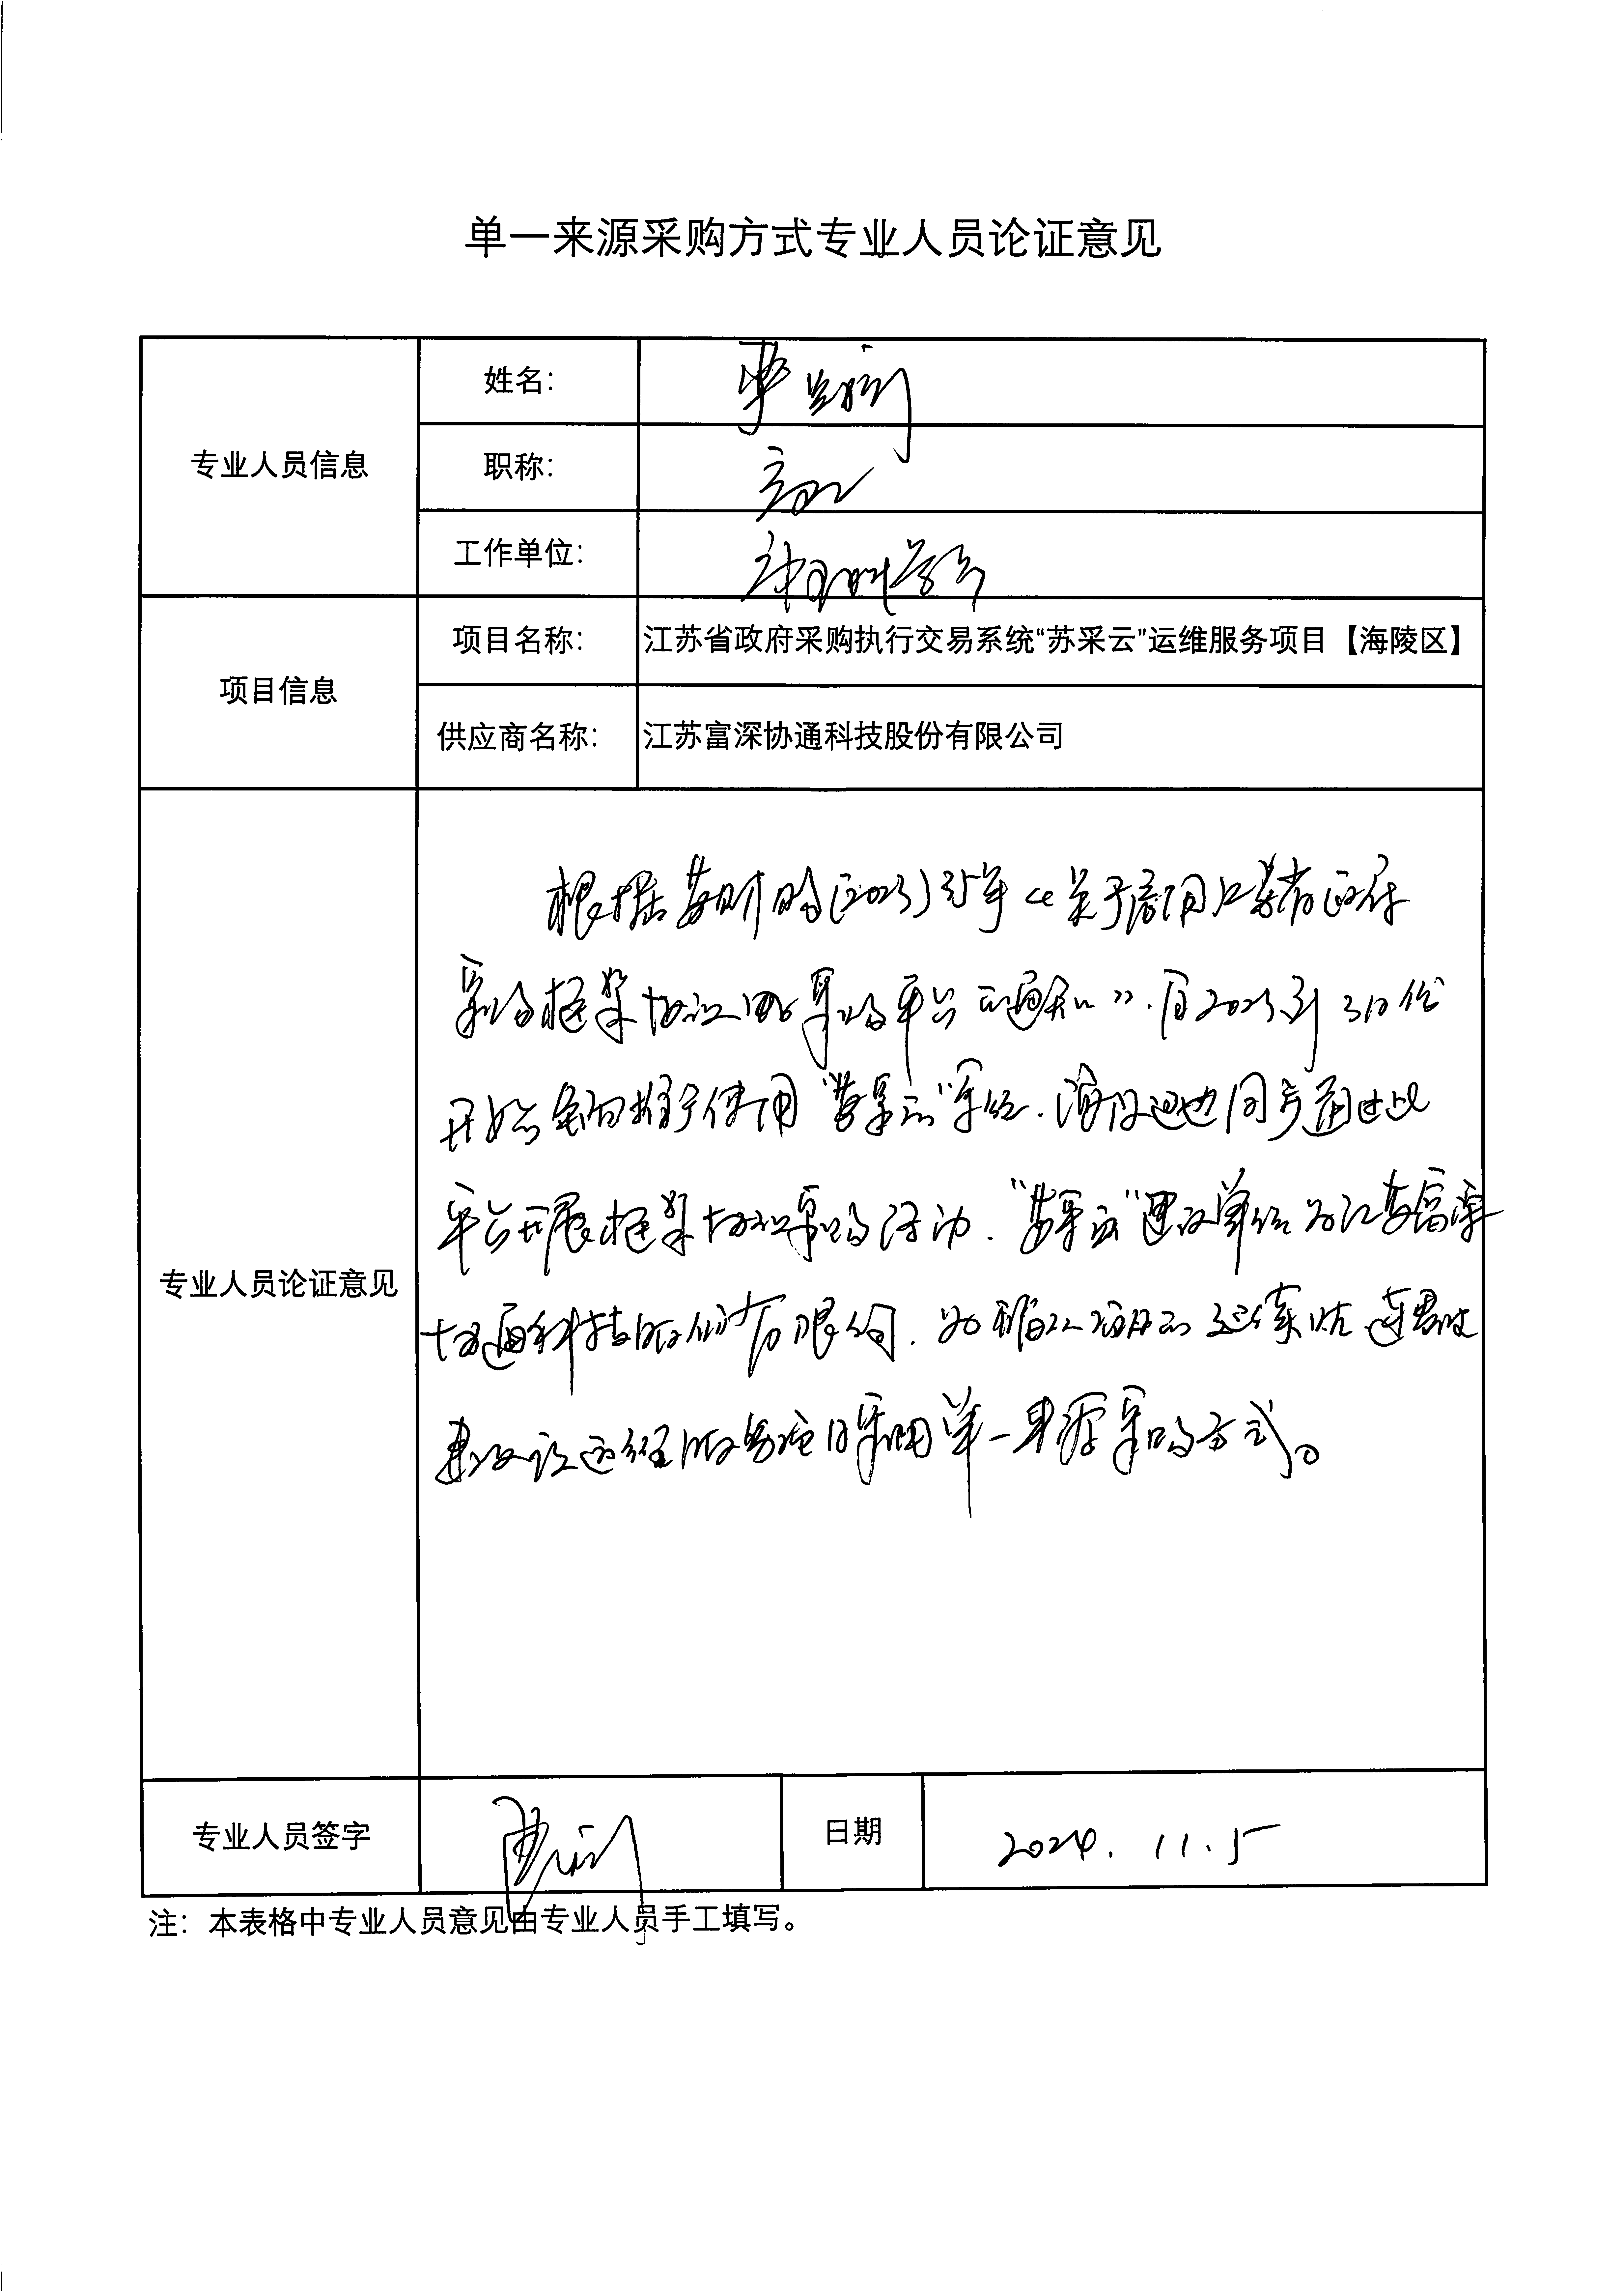 单一来源采购方式专业人员论证意见
专业人员信息
姓名：
职称：
高工
工作单位：
项目信息
项目名称：
江苏省政府采购执行交易系统“苏采云”运维服务项目【海陵区】
供应商名称：
江苏富深协通科技股份有限公司
专业人员论证意见
根据苏财购(2023)号《关于启用江苏省政府
采购框架协议采购平台的通知》.自2023到
开始全面推广使用“苏采云”系统.海陵区也同步通过此
平台开展框架协议采购活动.“苏采云”建设单位为江苏富深
协通科技股份有限公司.为项目的延续性
建议该运维服务项目采用单一来源采购方式。
专业人员签字
日期
2024.11.5
注：本表格中专业人员意见由专业人员手工填写。